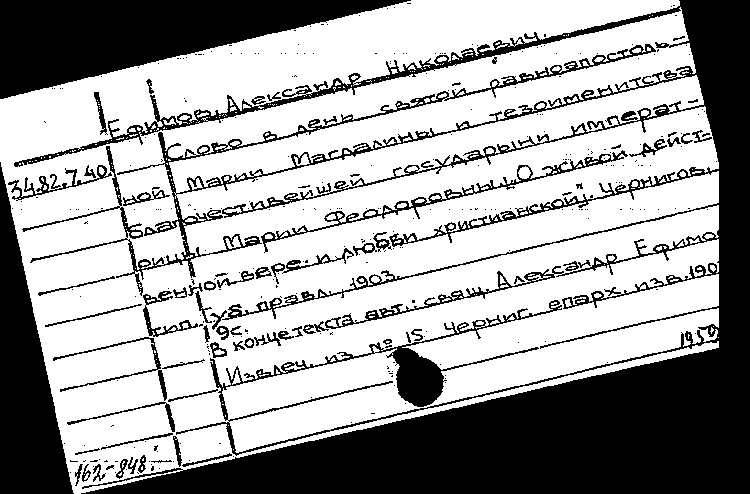 Ефимов, Александр Николаевич.
Слово в день святой равноапостоль-
34.82.7.40.
ной Марии Магдалины и тезоименитства
благочестивейшей государыни императ-
рицы Марии Феодоровны [„О живой дейст-
венной вере и любви христианской"]. Чернигов,
тип. Губ. правл., 1903.
9с.
В конце текста авт.: свящ. Александр Ефимо
Извлеч. из № 15 Черниг. епарх. изв. 190
1959
162-848.